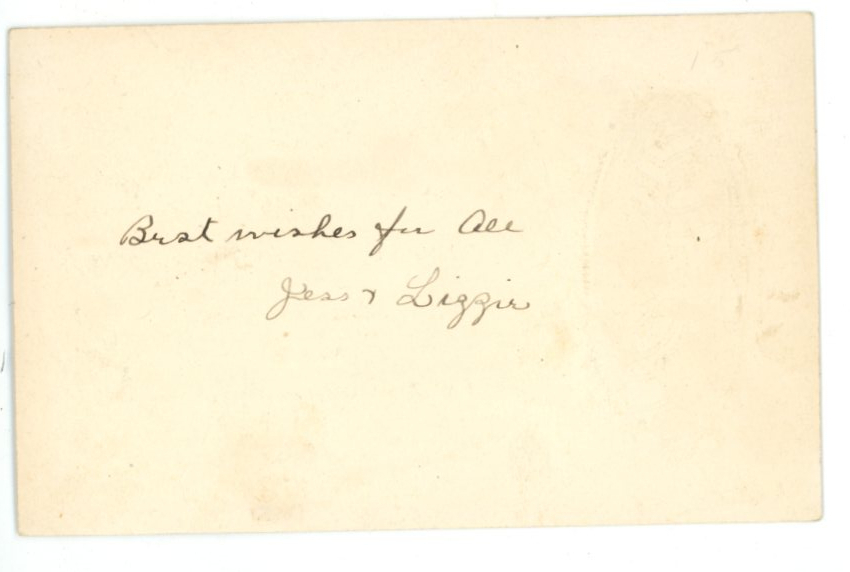 15
Best wishes for All
Jess & Lizzie